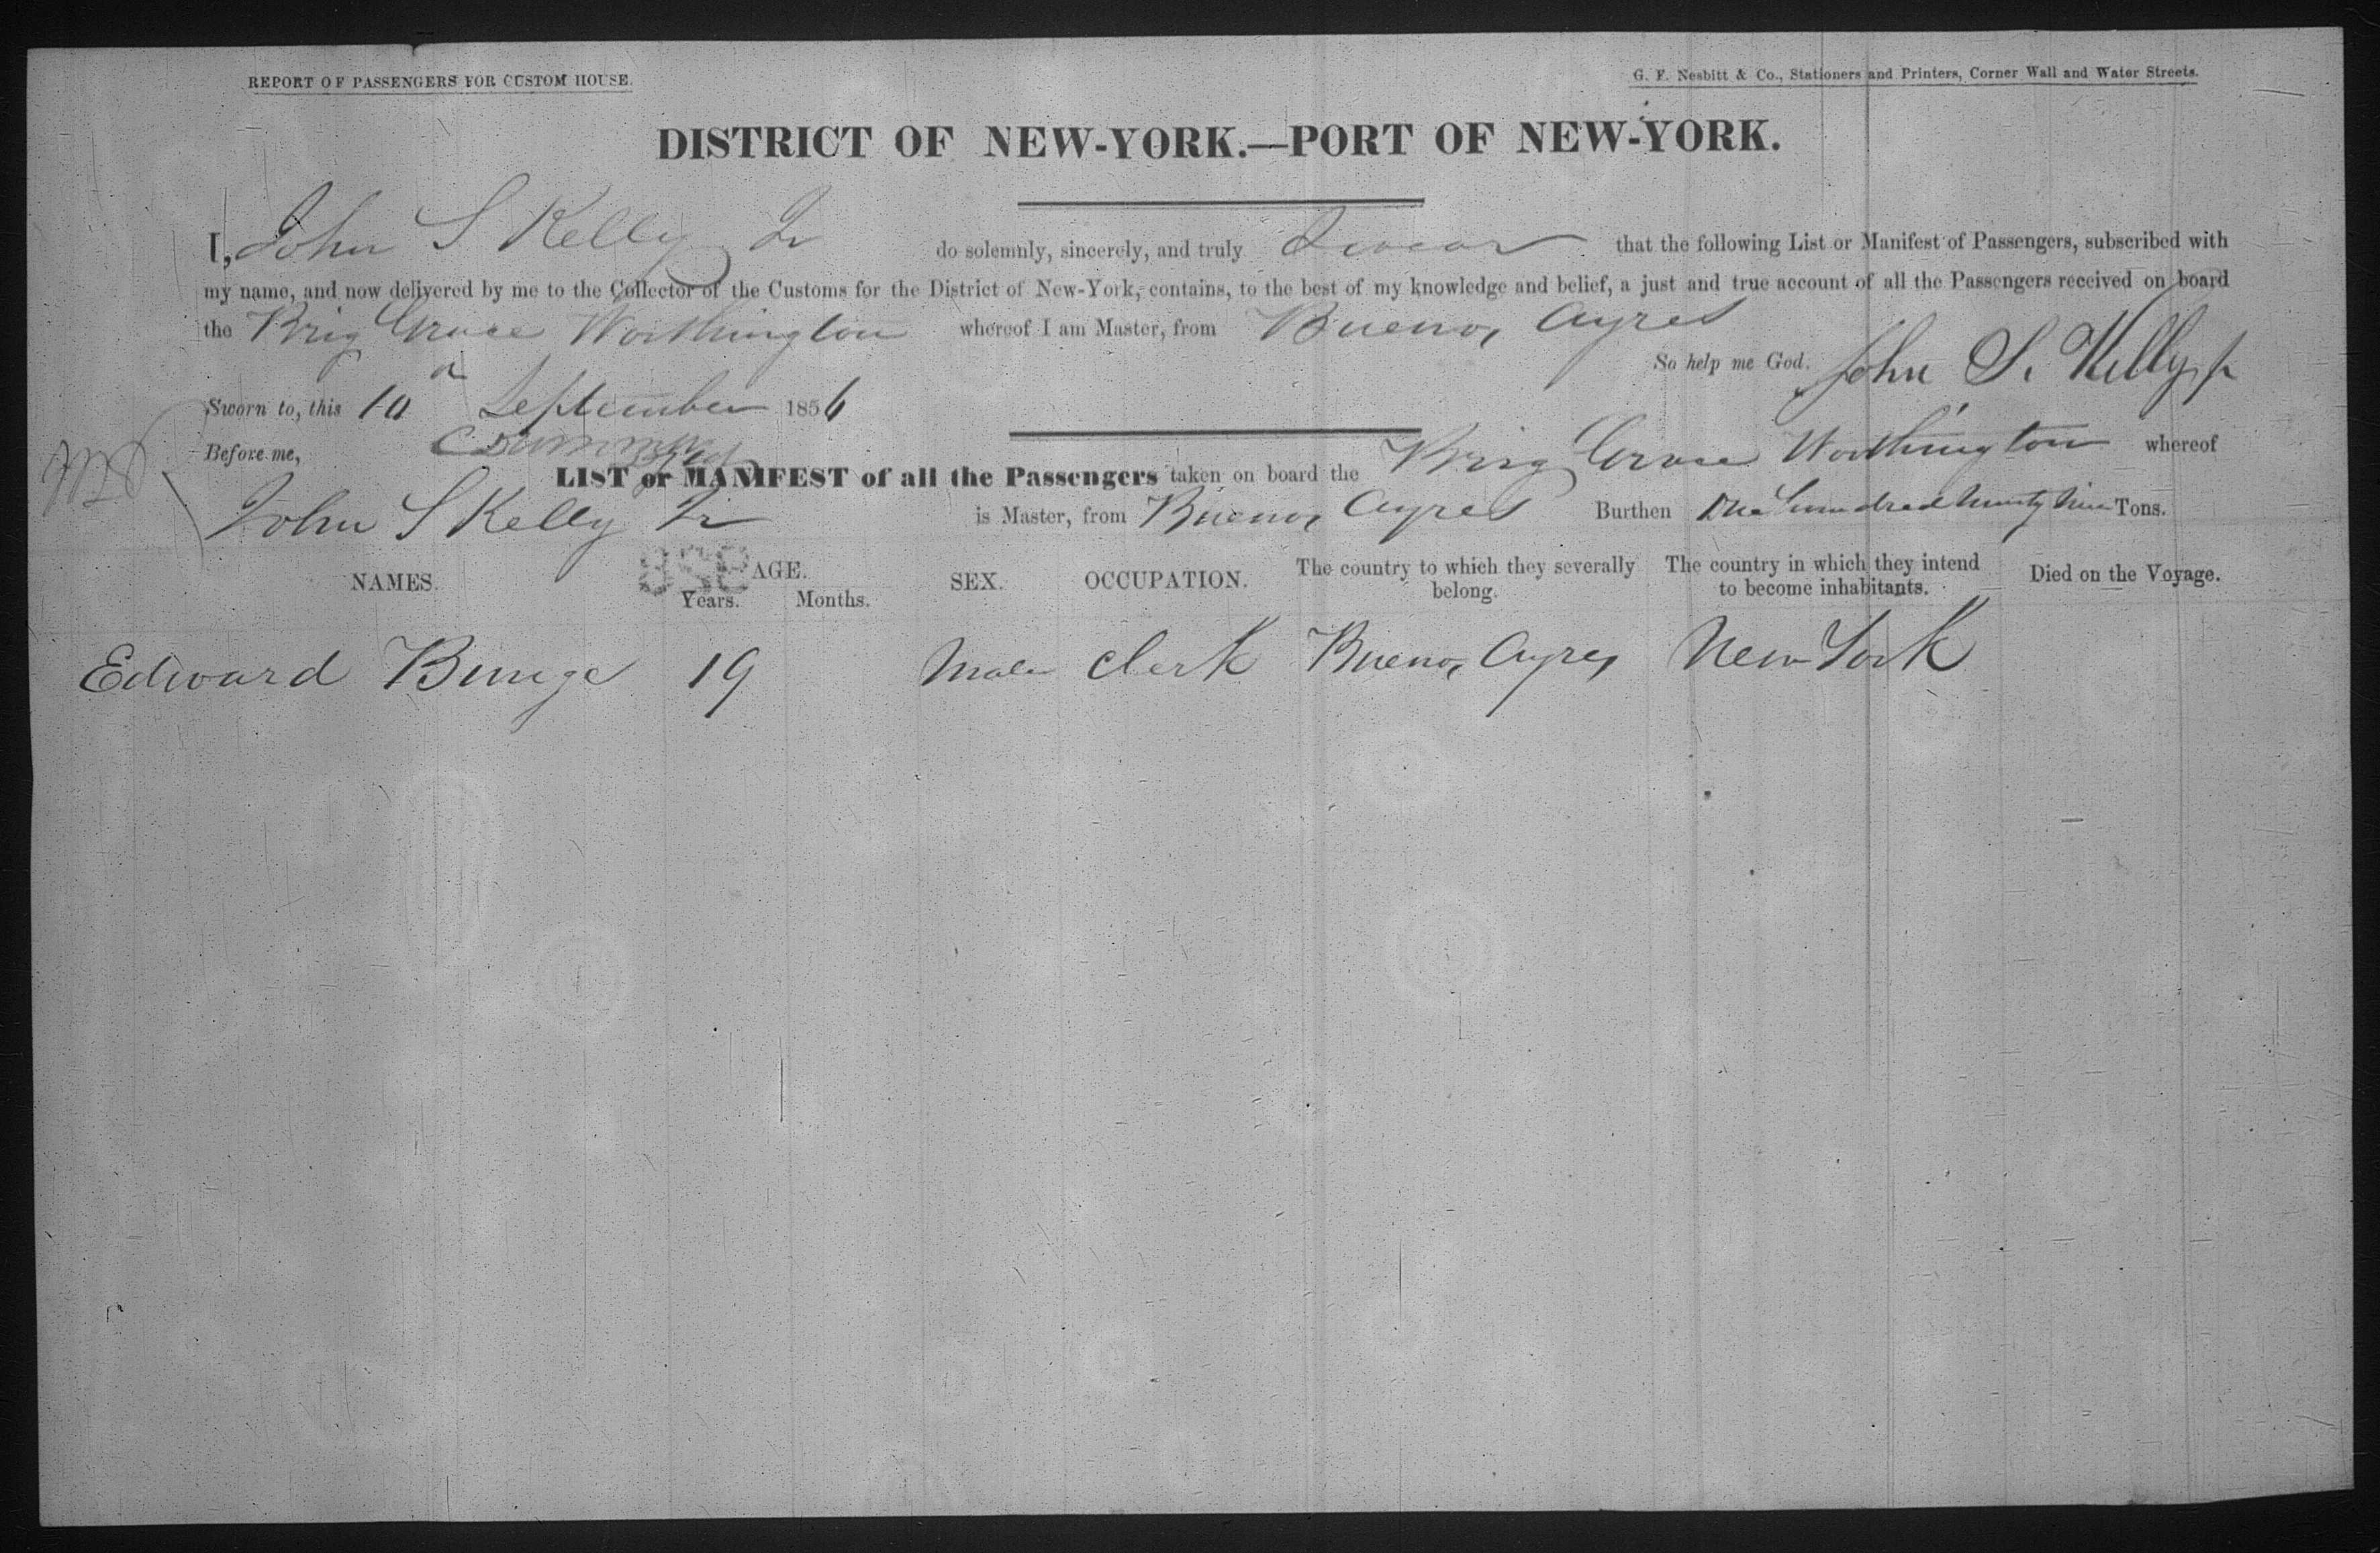 REPORT OF PASSENGERS FOR CUSTOM HOUSE.
G. F. Nesbitt & Co., Stationers and Printers, Corner Wall and Water Streets.
DISTRICT OF NEW-YORK.—PORT OF NEW-YORK.
I, John S Kelly Jr do solemnly, sincerely, and truly Swear that the following List or Manifest of Passengers, subscribed with
my name, and now delivered by me to the Collector of the Customs for the District of New-York, contains, to the best of my knowledge and belief, a just and true account of all the Passengers received on board
the Brig Grace Worthington whereof I am Master, from Buenos Ayres
So help me God. John S. Kelly jr
Sworn to, this 10 September 1856
Before me,
LIST or MANIFEST of all the Passengers taken on board the Brig Grace Worthington whereof
John S Kelly Jr is Master, from Buenos Ayres Burthen One Hundred Ninety Nine Tons.
NAMES. AGE. Years. Months. SEX. OCCUPATION. The country to which they severally belong. The country in which they intend to become inhabitants. Died on the Voyage.
Edward Bunge 19 Male Clerk Buenos Ayres New York